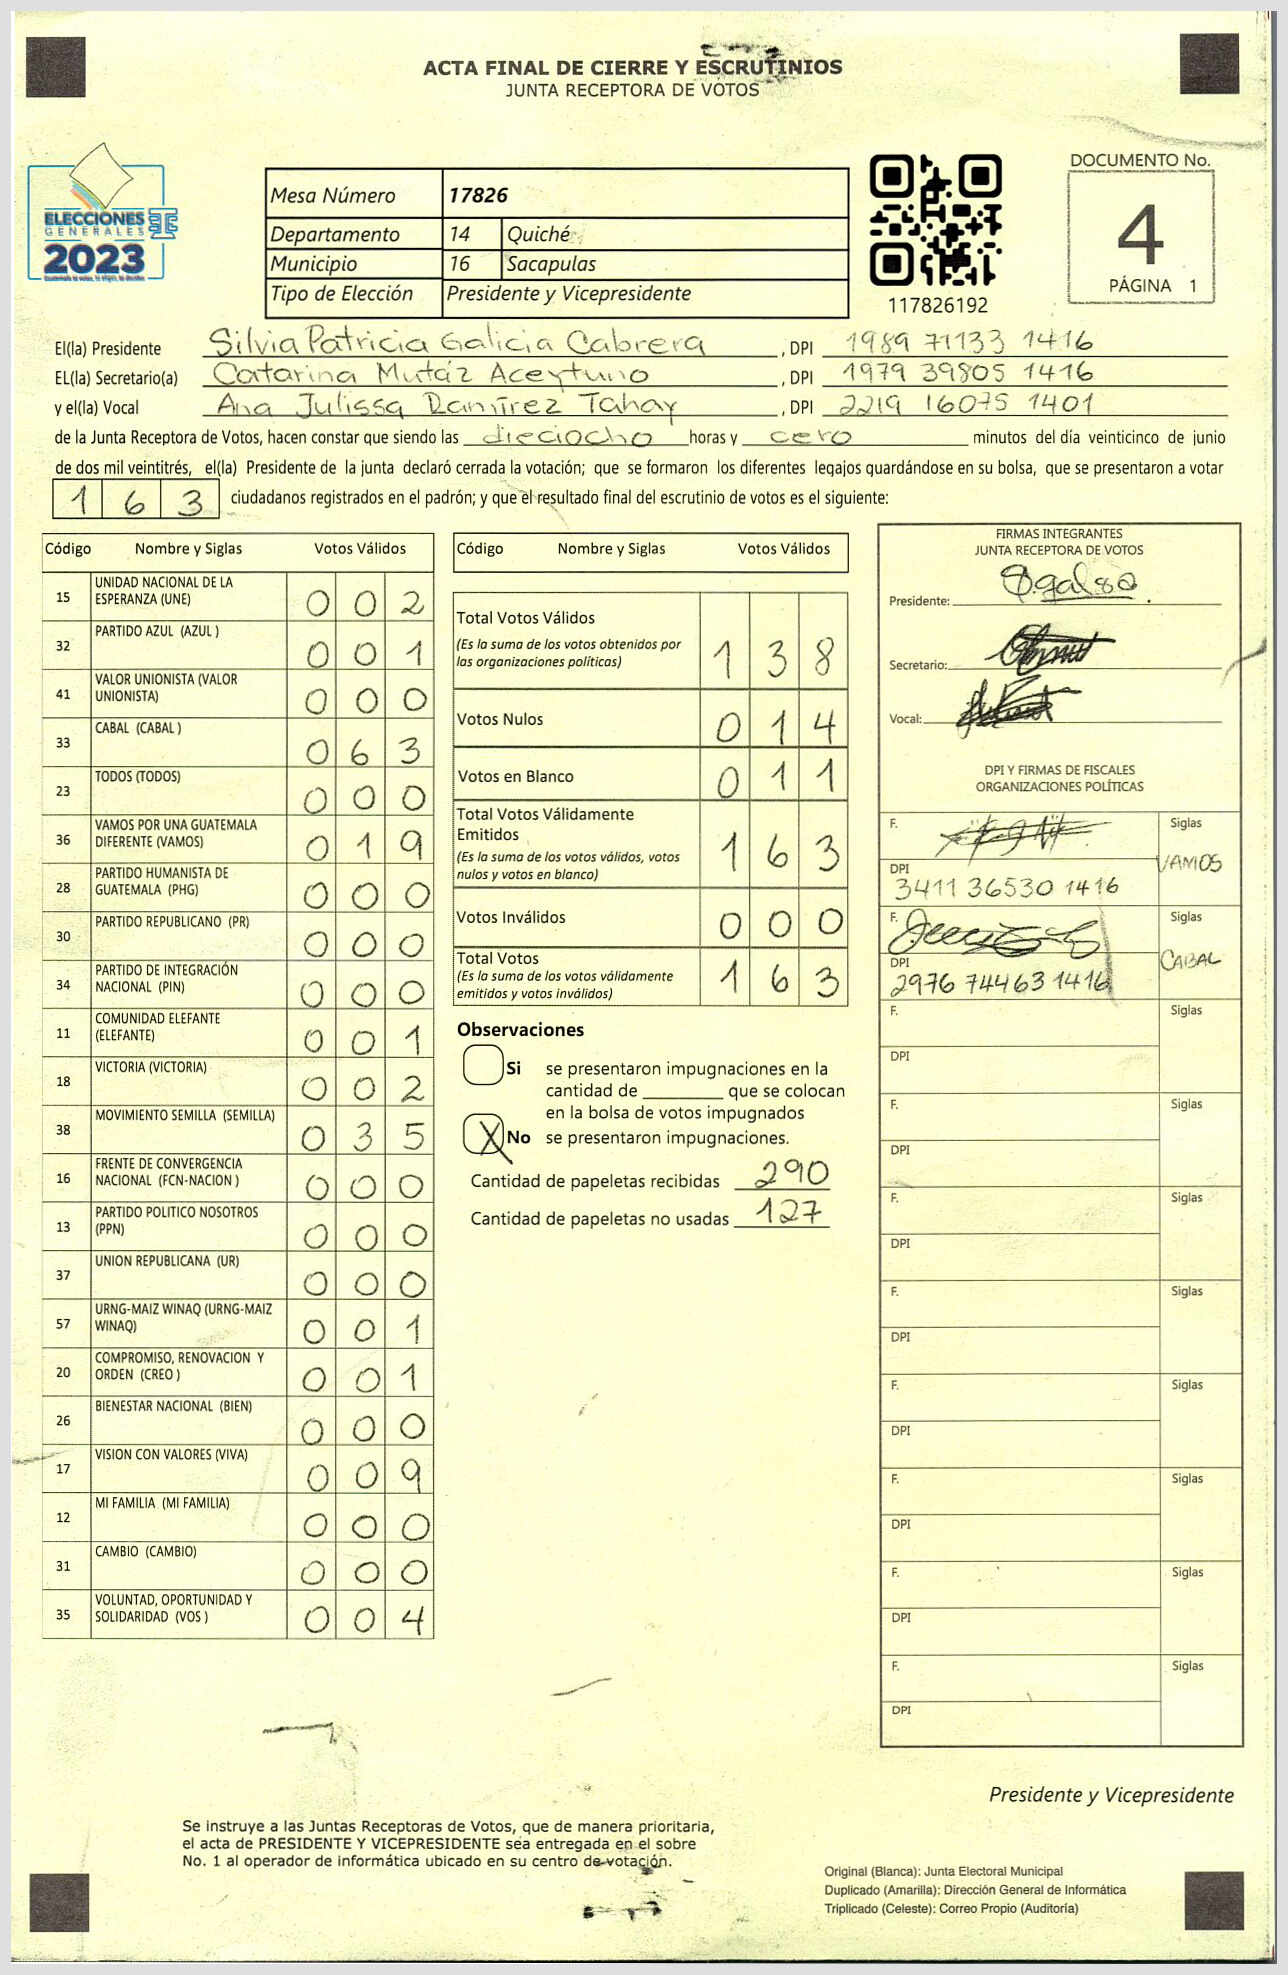 ACTA FINAL DE CIERRE Y ESCRUTINIOS
JUNTA RECEPTORA DE VOTOS
ELECCIONES
GENERALES
2023
Mesa Número 17826
Departamento 14 Quiché
Municipio 16 Sacapulas
Tipo de Elección Presidente y Vicepresidente
117826192
DOCUMENTO No.
4
PÁGINA 1
El(la) Presidente Silvia Patricia Galicia Cabrera , DPI 1989 71133 1416
EL(la) Secretario(a) Catarina Mutáz Aceytuno , DPI 1979 39805 1416
y el(la) Vocal Ana Julissa Ramírez Tahay , DPI 2219 16075 1401
de la Junta Receptora de Votos, hacen constar que siendo las dieciocho horas y cero minutos del día veinticinco de junio
de dos mil veintitrés, el(la) Presidente de la junta declaró cerrada la votación; que se formaron los diferentes legajos guardándose en su bolsa, que se presentaron a votar
163 ciudadanos registrados en el padrón; y que el resultado final del escrutinio de votos es el siguiente:
Código Nombre y Siglas Votos Válidos
15 UNIDAD NACIONAL DE LA ESPERANZA (UNE) 0 0 2
32 PARTIDO AZUL (AZUL ) 0 0 1
41 VALOR UNIONISTA (VALOR UNIONISTA) 0 0 0
33 CABAL (CABAL ) 0 6 3
23 TODOS (TODOS) 0 0 0
36 VAMOS POR UNA GUATEMALA DIFERENTE (VAMOS) 0 1 9
28 PARTIDO HUMANISTA DE GUATEMALA (PHG) 0 0 0
30 PARTIDO REPUBLICANO (PR) 0 0 0
34 PARTIDO DE INTEGRACIÓN NACIONAL (PIN) 0 0 0
11 COMUNIDAD ELEFANTE (ELEFANTE) 0 0 1
18 VICTORIA (VICTORIA) 0 0 2
38 MOVIMIENTO SEMILLA (SEMILLA) 0 3 5
16 FRENTE DE CONVERGENCIA NACIONAL (FCN-NACION ) 0 0 0
13 PARTIDO POLITICO NOSOTROS (PPN) 0 0 0
37 UNION REPUBLICANA (UR) 0 0 0
57 URNG-MAIZ WINAQ (URNG-MAIZ WINAQ) 0 0 1
20 COMPROMISO, RENOVACION Y ORDEN (CREO ) 0 0 1
26 BIENESTAR NACIONAL (BIEN) 0 0 0
17 VISION CON VALORES (VIVA) 0 0 9
12 MI FAMILIA (MI FAMILIA) 0 0 0
31 CAMBIO (CAMBIO) 0 0 0
35 VOLUNTAD, OPORTUNIDAD Y SOLIDARIDAD (VOS ) 0 0 4
Código Nombre y Siglas Votos Válidos
Total Votos Válidos
(Es la suma de los votos obtenidos por
las organizaciones políticas) 1 3 8
Votos Nulos 0 1 4
Votos en Blanco 0 1 1
Total Votos Válidamente
Emitidos
(Es la suma de los votos válidos, votos
nulos y votos en blanco) 1 6 3
Votos Inválidos 0 0 0
Total Votos
(Es la suma de los votos válidamente
emitidos y votos inválidos) 1 6 3
Observaciones
Si se presentaron impugnaciones en la
cantidad de ________ que se colocan
en la bolsa de votos impugnados
X No se presentaron impugnaciones.
Cantidad de papeletas recibidas 290
Cantidad de papeletas no usadas 127
FIRMAS INTEGRANTES
JUNTA RECEPTORA DE VOTOS
Presidente:
Secretario:
Vocal:
DPI Y FIRMAS DE FISCALES
ORGANIZACIONES POLÍTICAS
F. Siglas
VAMOS
DPI
3411 36530 1416
F. Siglas
CABAL
DPI
2976 74463 1416
F. Siglas
DPI
F. Siglas
DPI
F. Siglas
DPI
F. Siglas
DPI
F. Siglas
DPI
F. Siglas
DPI
F. Siglas
DPI
F. Siglas
DPI
Presidente y Vicepresidente
Se instruye a las Juntas Receptoras de Votos, que de manera prioritaria,
el acta de PRESIDENTE Y VICEPRESIDENTE sea entregada en el sobre
No. 1 al operador de informática ubicado en su centro de votación.
Original (Blanca): Junta Electoral Municipal
Duplicado (Amarilla): Dirección General de Informática
Triplicado (Celeste): Correo Propio (Auditoría)